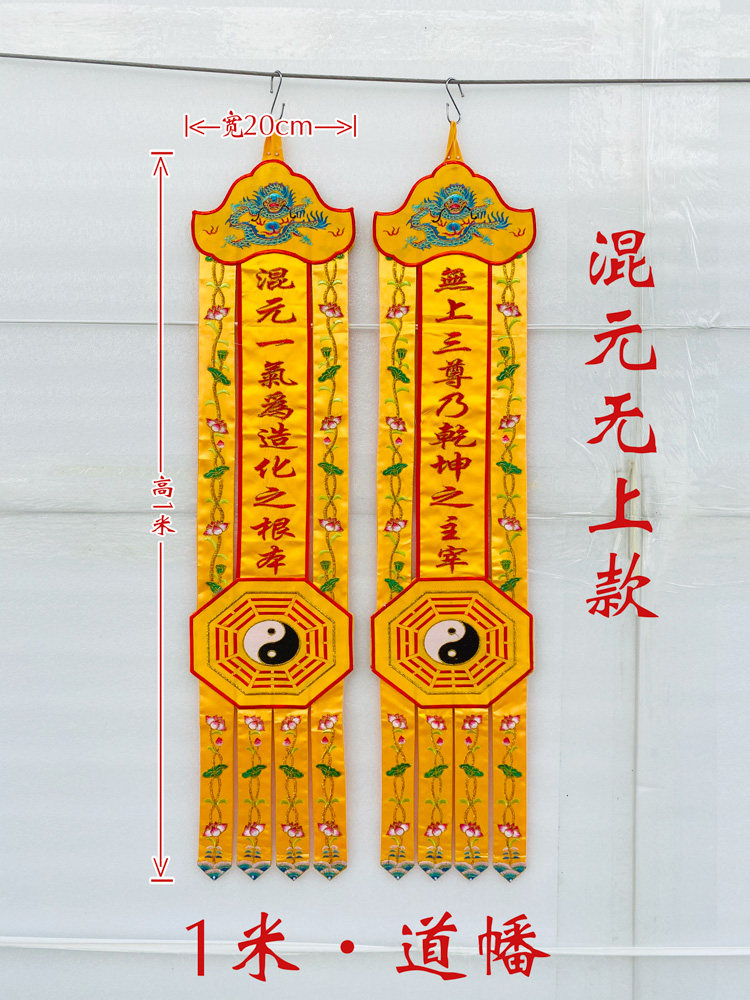 宽20cm
高1米
混元一氣爲造化之根本
無上三尊乃乾坤之主宰
混元无上款
1米·道幡